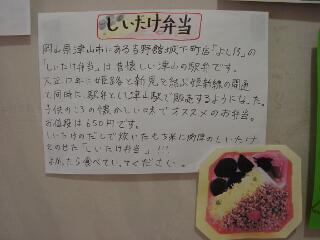 しいたけ弁当
岡山県津山市にある吉野館城下町店「よし乃」の
「しいたけ弁当」は昔懐しい津山の駅弁です。
大正12年に姫路と新見を結ぶ姫新線の開通
と同時に駅弁として津山駅で販売するようになった。
子供のころの懐かしい味でオススメのお弁当。
お値段は650円です。
しいたけのだしで炊いたもち米に肉厚のしいたけ
をのせた「しいたけ弁当」!!!
よかったら食べていってください。